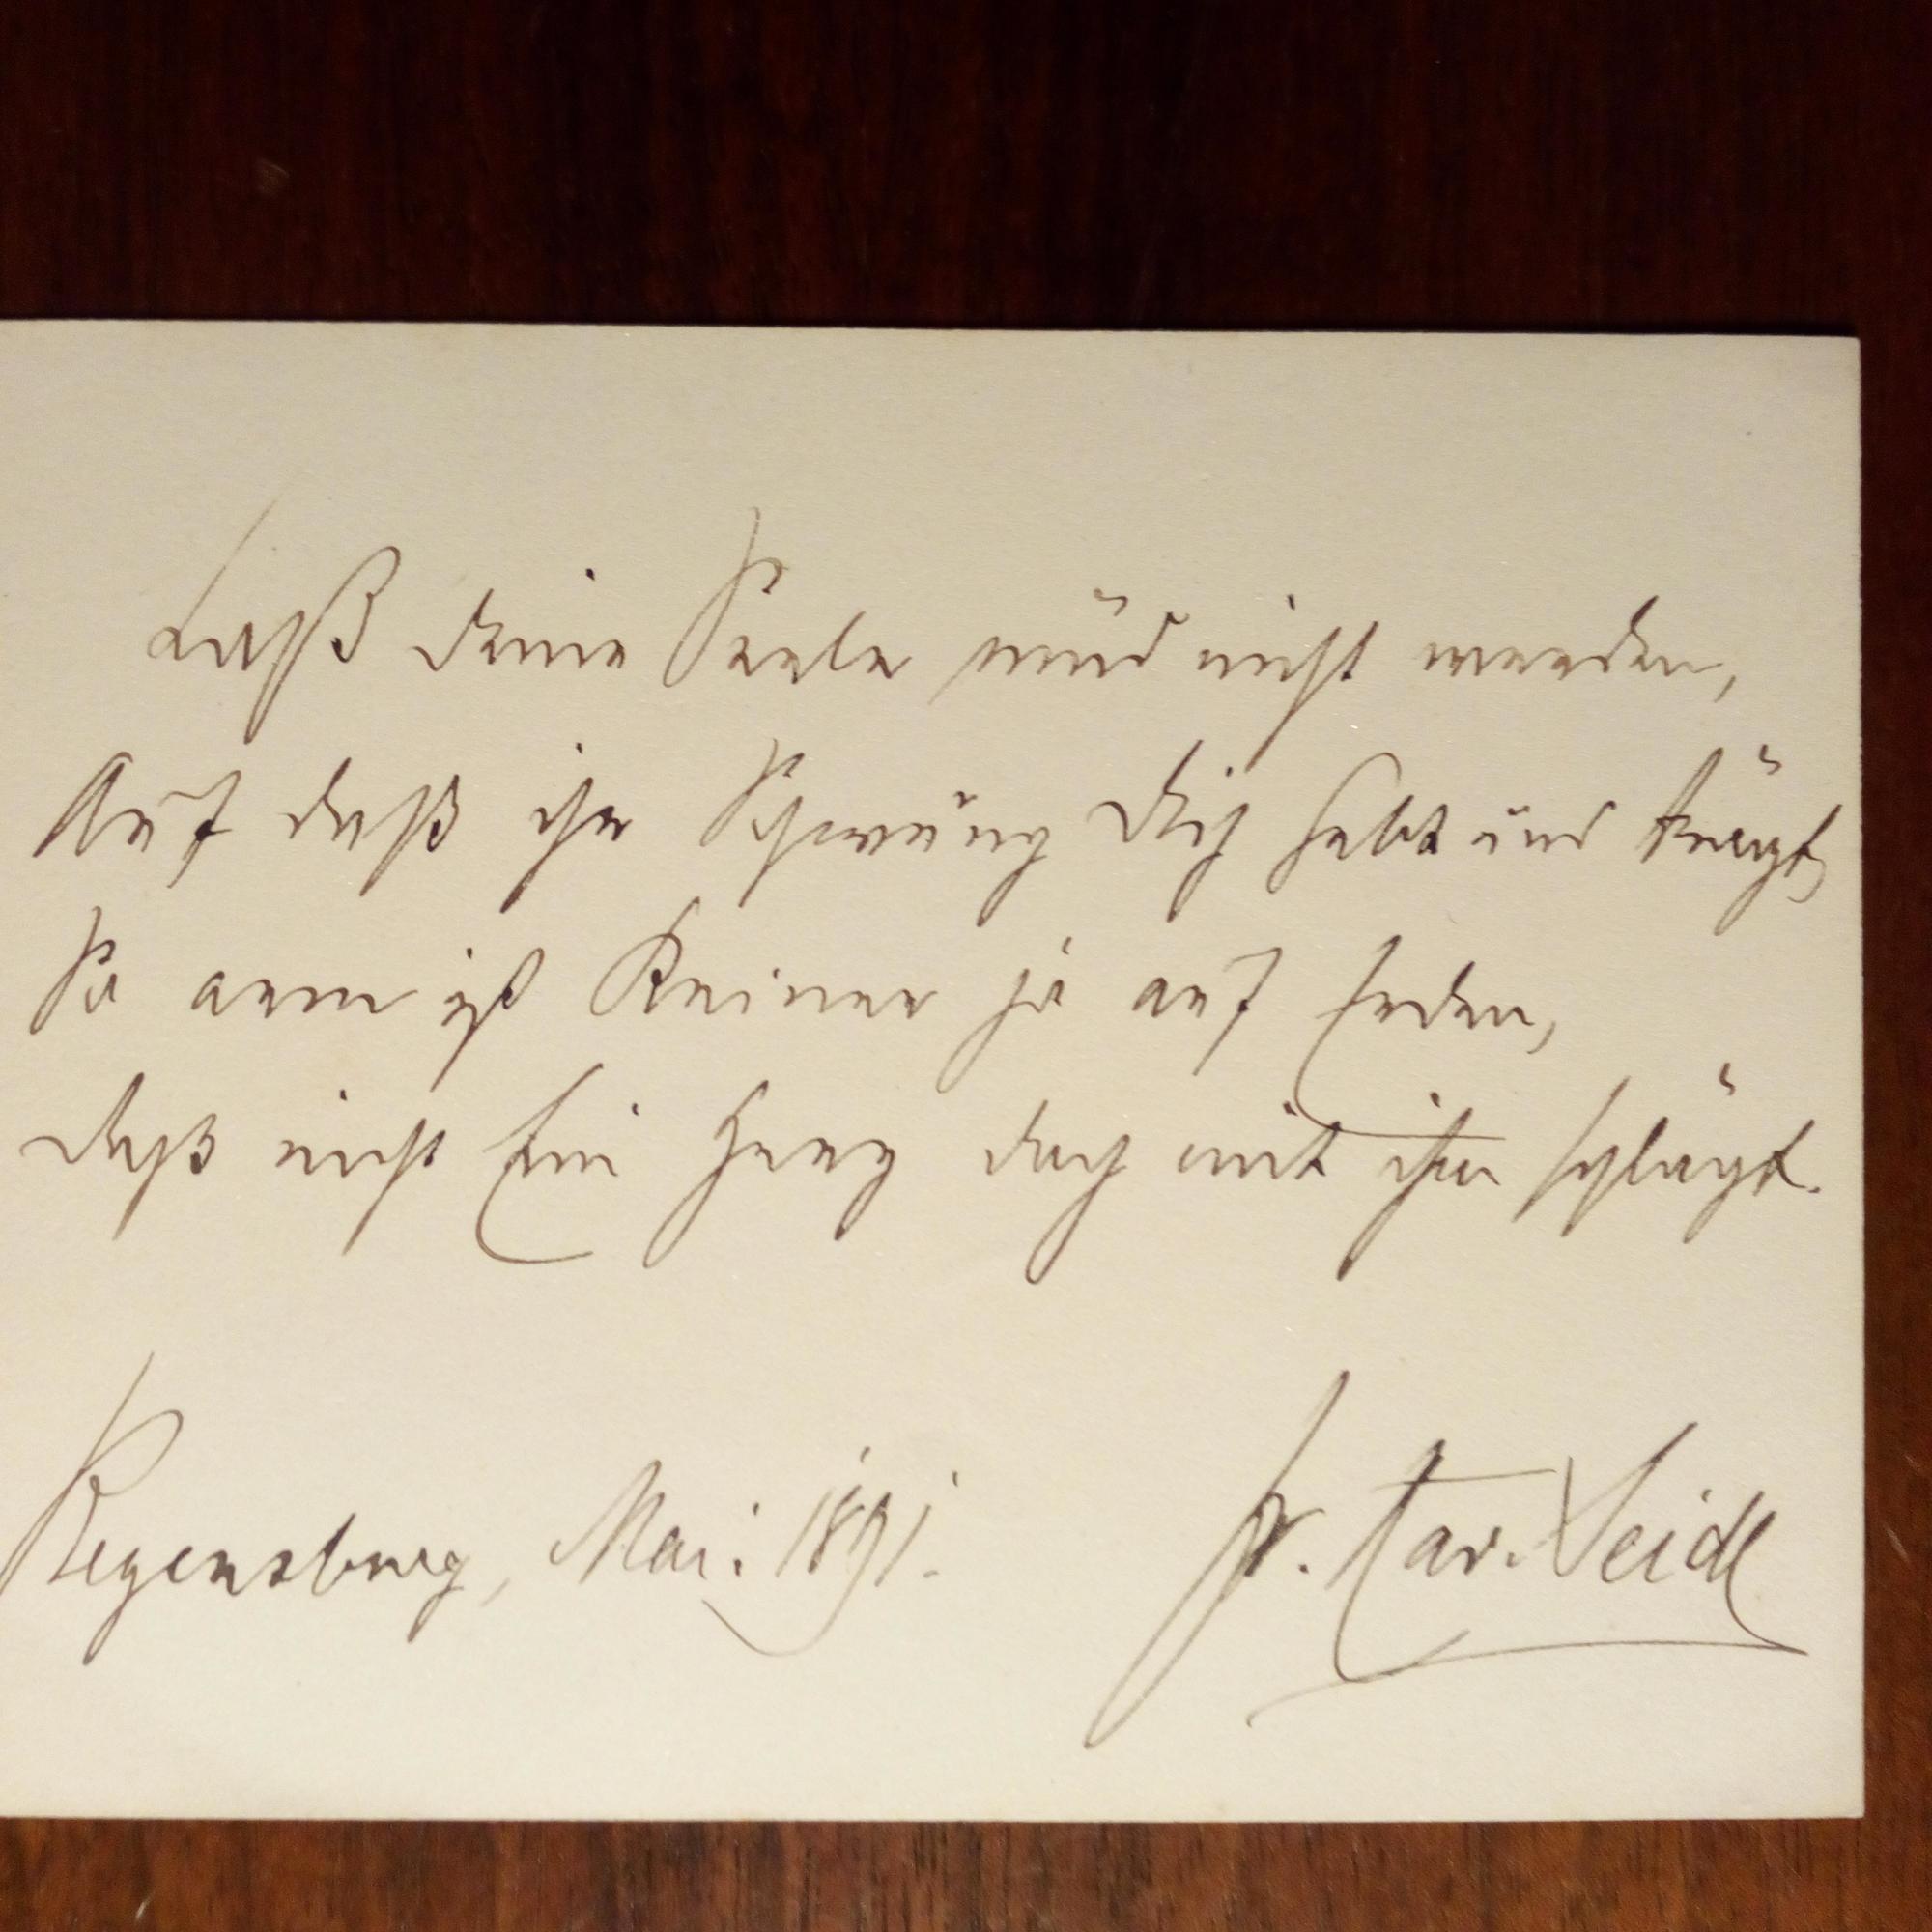 Laß deine Seele müd nicht werden,
Auf daß ihr Schwung dich hebt und trägt,
So arm ist Keiner ja auf Erden,
daß nicht Ein Herz doch mit ihm schlägt.
Regensburg, Mai 1891.
Fr. Xav. Seidl